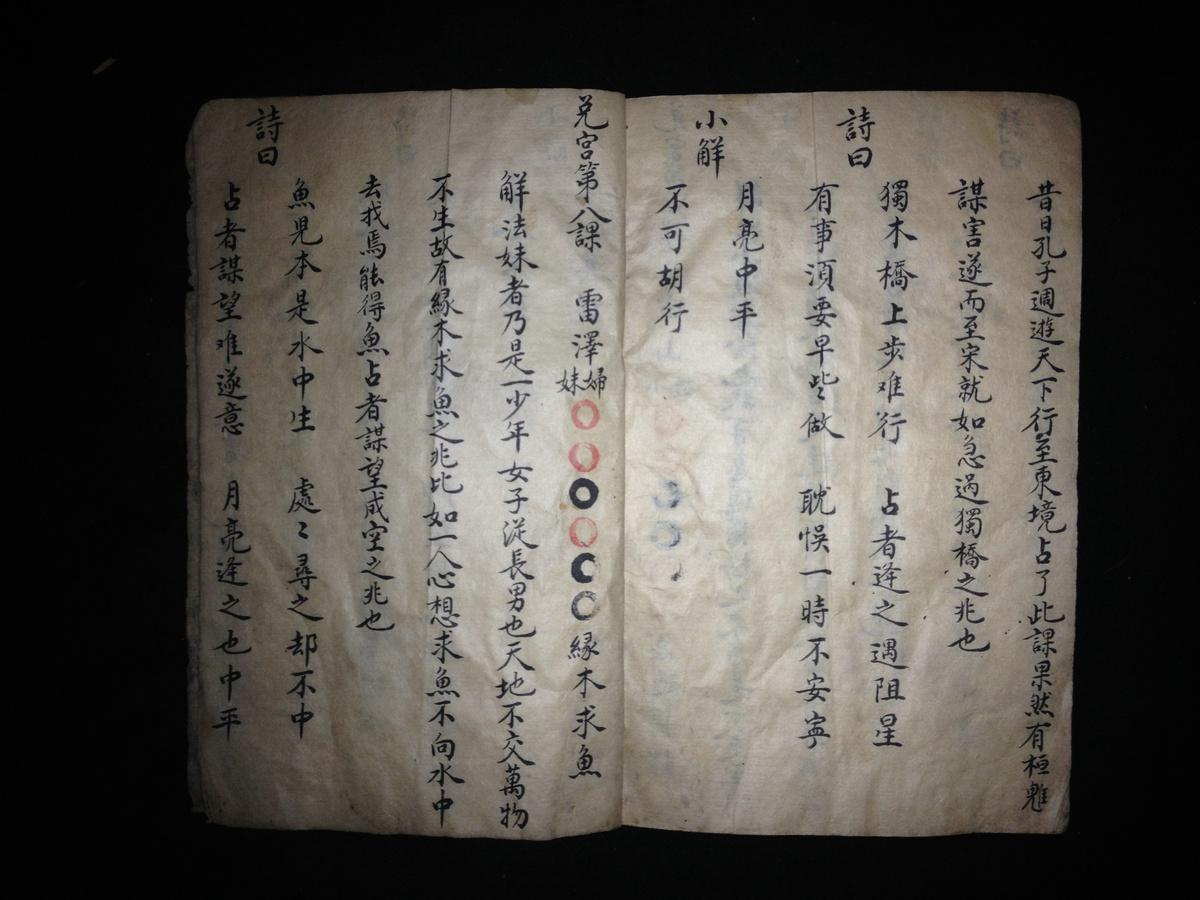 昔日孔子週遊天下行至東境占了此課果然有桓魋
謀害遂而至宋就如急過獨橋之兆也
詩曰
獨木橋上步难行 占者逢之遇阻星
有事須要早些做 耽悮一時不安寧
小解
月亮中平
不可胡行
兌宮第八課 雷澤婦妹 緣木求魚
解法妹者乃是一少年女子從長男也天地不交萬物
不生故有緣木求魚之兆比如一人心想求魚不向水中
去找焉能得魚占者謀望咸空之兆也
詩曰
魚児本是水中生 處〻尋之却不中
占者謀望难遂意 月亮逢之也中平